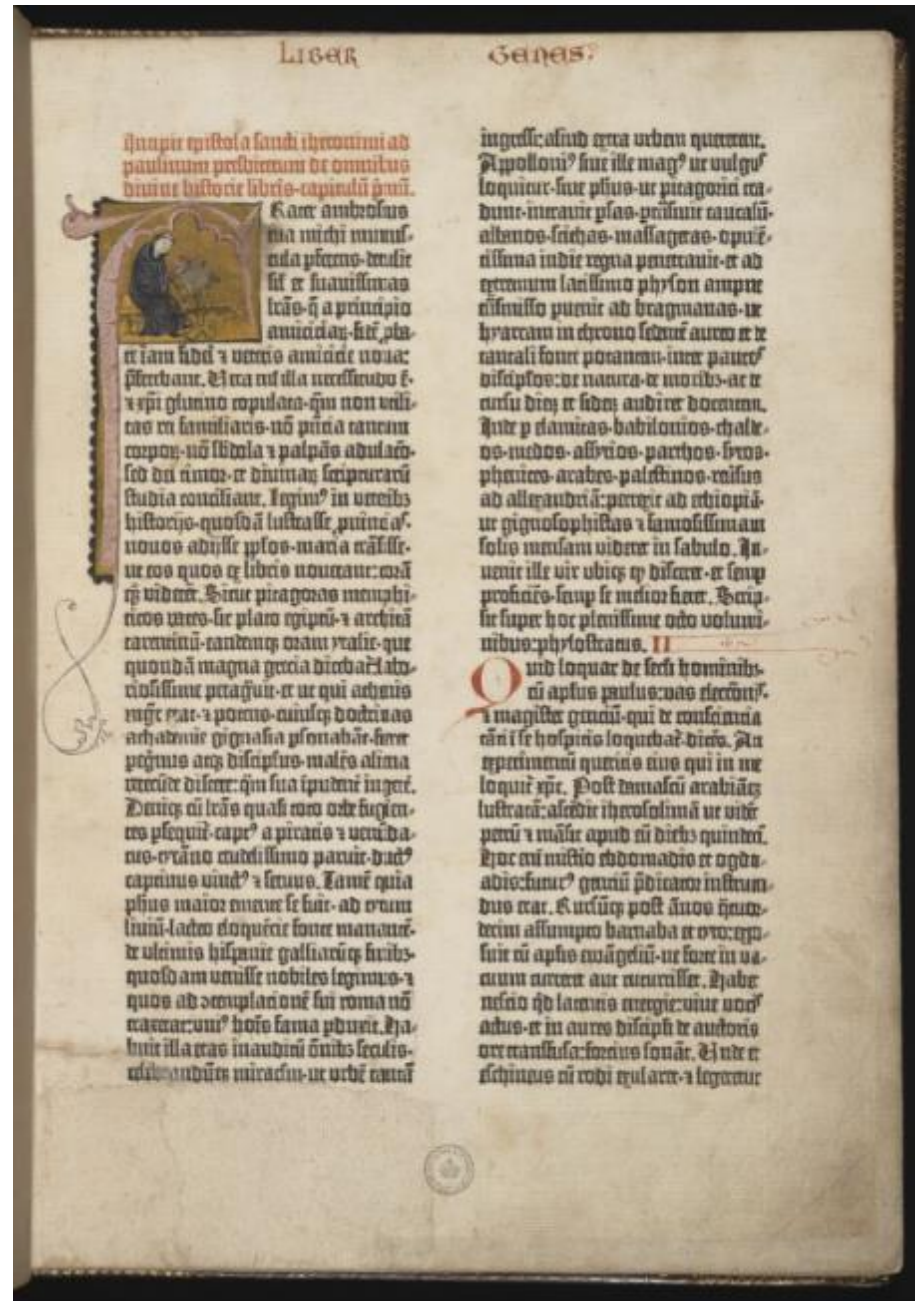 LIBER GENES.
Incipit epistola sancti iheronimi ad
paulinum presbiterum de omnibus
divine historie libris·capitulū p̄mū.
Frater ambrosius
tua michi munus-
cula p̄ferens·detulit
sil̄ et suavissimas
lr̄as·q̄ a principio
amiciciaꝝ·fidē ꝓba-
te iam fidei ⁊ veteris amicicie nova:
p̄ferebant. Vera eni̅ illa necessitudo ē·
⁊ xp̄i glutino copulata·qm̄ non utili-
tas rei familiaris·nō p̄ntia tantum
corporꝝ·nō sb̄dola ⁊ palpās adulaco̅·
sed dei timor·et divinaꝝ scripturarū
studia conciliant. Legim⁹ in veteribꝫ
historijs·quosdā lustrasse ꝓuincias·
novos adijsse ppl̄os·maria trāsisse·
ut eos quos ex libris noverant: corā
qꝫ viderēt. Sicut pitagoras memphi-
ticos vates·sic plato egiptū·⁊ architā
tarentinū·eandemqꝫ oram ytalie·que
quondā magna grecia dicebat̄: labo-
riosissime peragrāvit·et ut qui athenis
mgr̄ erat·⁊ potens·cuiusqꝫ doctrinas
achademie gignasia ꝑsonabāt·fieret
peg̅rinus atqꝫ discipulus·malēs aliena
verecūde discere: qm̄ sua īpudent̄ ingerē.
Deniqꝫ cū lr̄as quasi toto orbe fugien-
tes ꝑsequit̄·capt⁹ a piratis ⁊ venūda-
tus·tyrāno crudelissimo paruit·duct⁹
captivus vinct⁹ ⁊ servus. Tamē quia
phūs maior emente se fuit·ad tytum
liviū·lacteo eloquētie fonte manantē·
de ultimis hispanie galliarūqꝫ finibꝫ·
quosdam venisse nobiles legimus·⁊
quos ad ↄtemplationē sui roma nō
traxerat: uni⁹ hoīs fama ꝑduxit. Ha-
buit illa etas inauditū ōnibꝫ seculis·
celebrandūqꝫ miraclm̄·ut urbē tantā
ingressi: aliud extra urbem quererent.
Appolloni⁹ sive ille mag⁹ ut vulgus
loquitur·sive ph̄us·ut pitagorici tra-
dunt·intravit ꝑsas·ꝑtrāsivit caucasū·
albanos·scithas·massagetas·opulē-
tissima indie regna penetravit·et ad
extremum latissimo physon ampne
trāsmisso puenit ad bragmanas·ut
hyarcam in throno sedentē aureo et de
tantali fonte potantem·inter paucos
discipl̄os: de natura·de moribꝫ·ac de
cursu dieꝝ et sideꝝ audiret docentem.
Inde ꝑ elamitas·babilonios·chalde-
os·medos·assyrios·parthos·syros·
phenices·arabes·palestinos·revsus
ad allexandriā: perrexit ad ethiopiā·
ut gignosophistas ⁊ famosissimam
solis mensam videret in sabulo. In-
venit ille vir ubiqꝫ qꝫ disceret·et semp
proficiēs·semp se melior fieret. Scrip-
sit super hoc plenissime octo volumi-
nibus: phylostratus. II
Quid loquar de secli hominibꝫ·
cū aplūs paulus: vas elecc̄onis·
⁊ magister gentiū·qui de conscientia
tāti ī se hospitis loquebat̄·dicēs. An
experimentū queritis eius qui in me
loquit̄ xp̄c. Post damascū arabiāqꝫ
lustratā: ascēdit iherosolimā ut vidēt
petrū ⁊ māsit apud eū diebꝫ quindecī.
Hoc eni̅ misterio ebdomadis et ogdo-
adis: futur⁹ gentiū p̄dicator instruen-
dus erat. Rursūqꝫ post ānos q̄tuor-
decim assumpto barnaba et tyto: expo-
suit cū aplīs evāgeliū·ne forte in va-
cuum curreret aut cucurrisset. Habet
nescio q̄d latentis energie: vive vocis
actus·et in aures discipli de auctoris
ore transfusa: fortius sonāt. Unde et
eschineus cū rodi exularet·⁊ legeretur